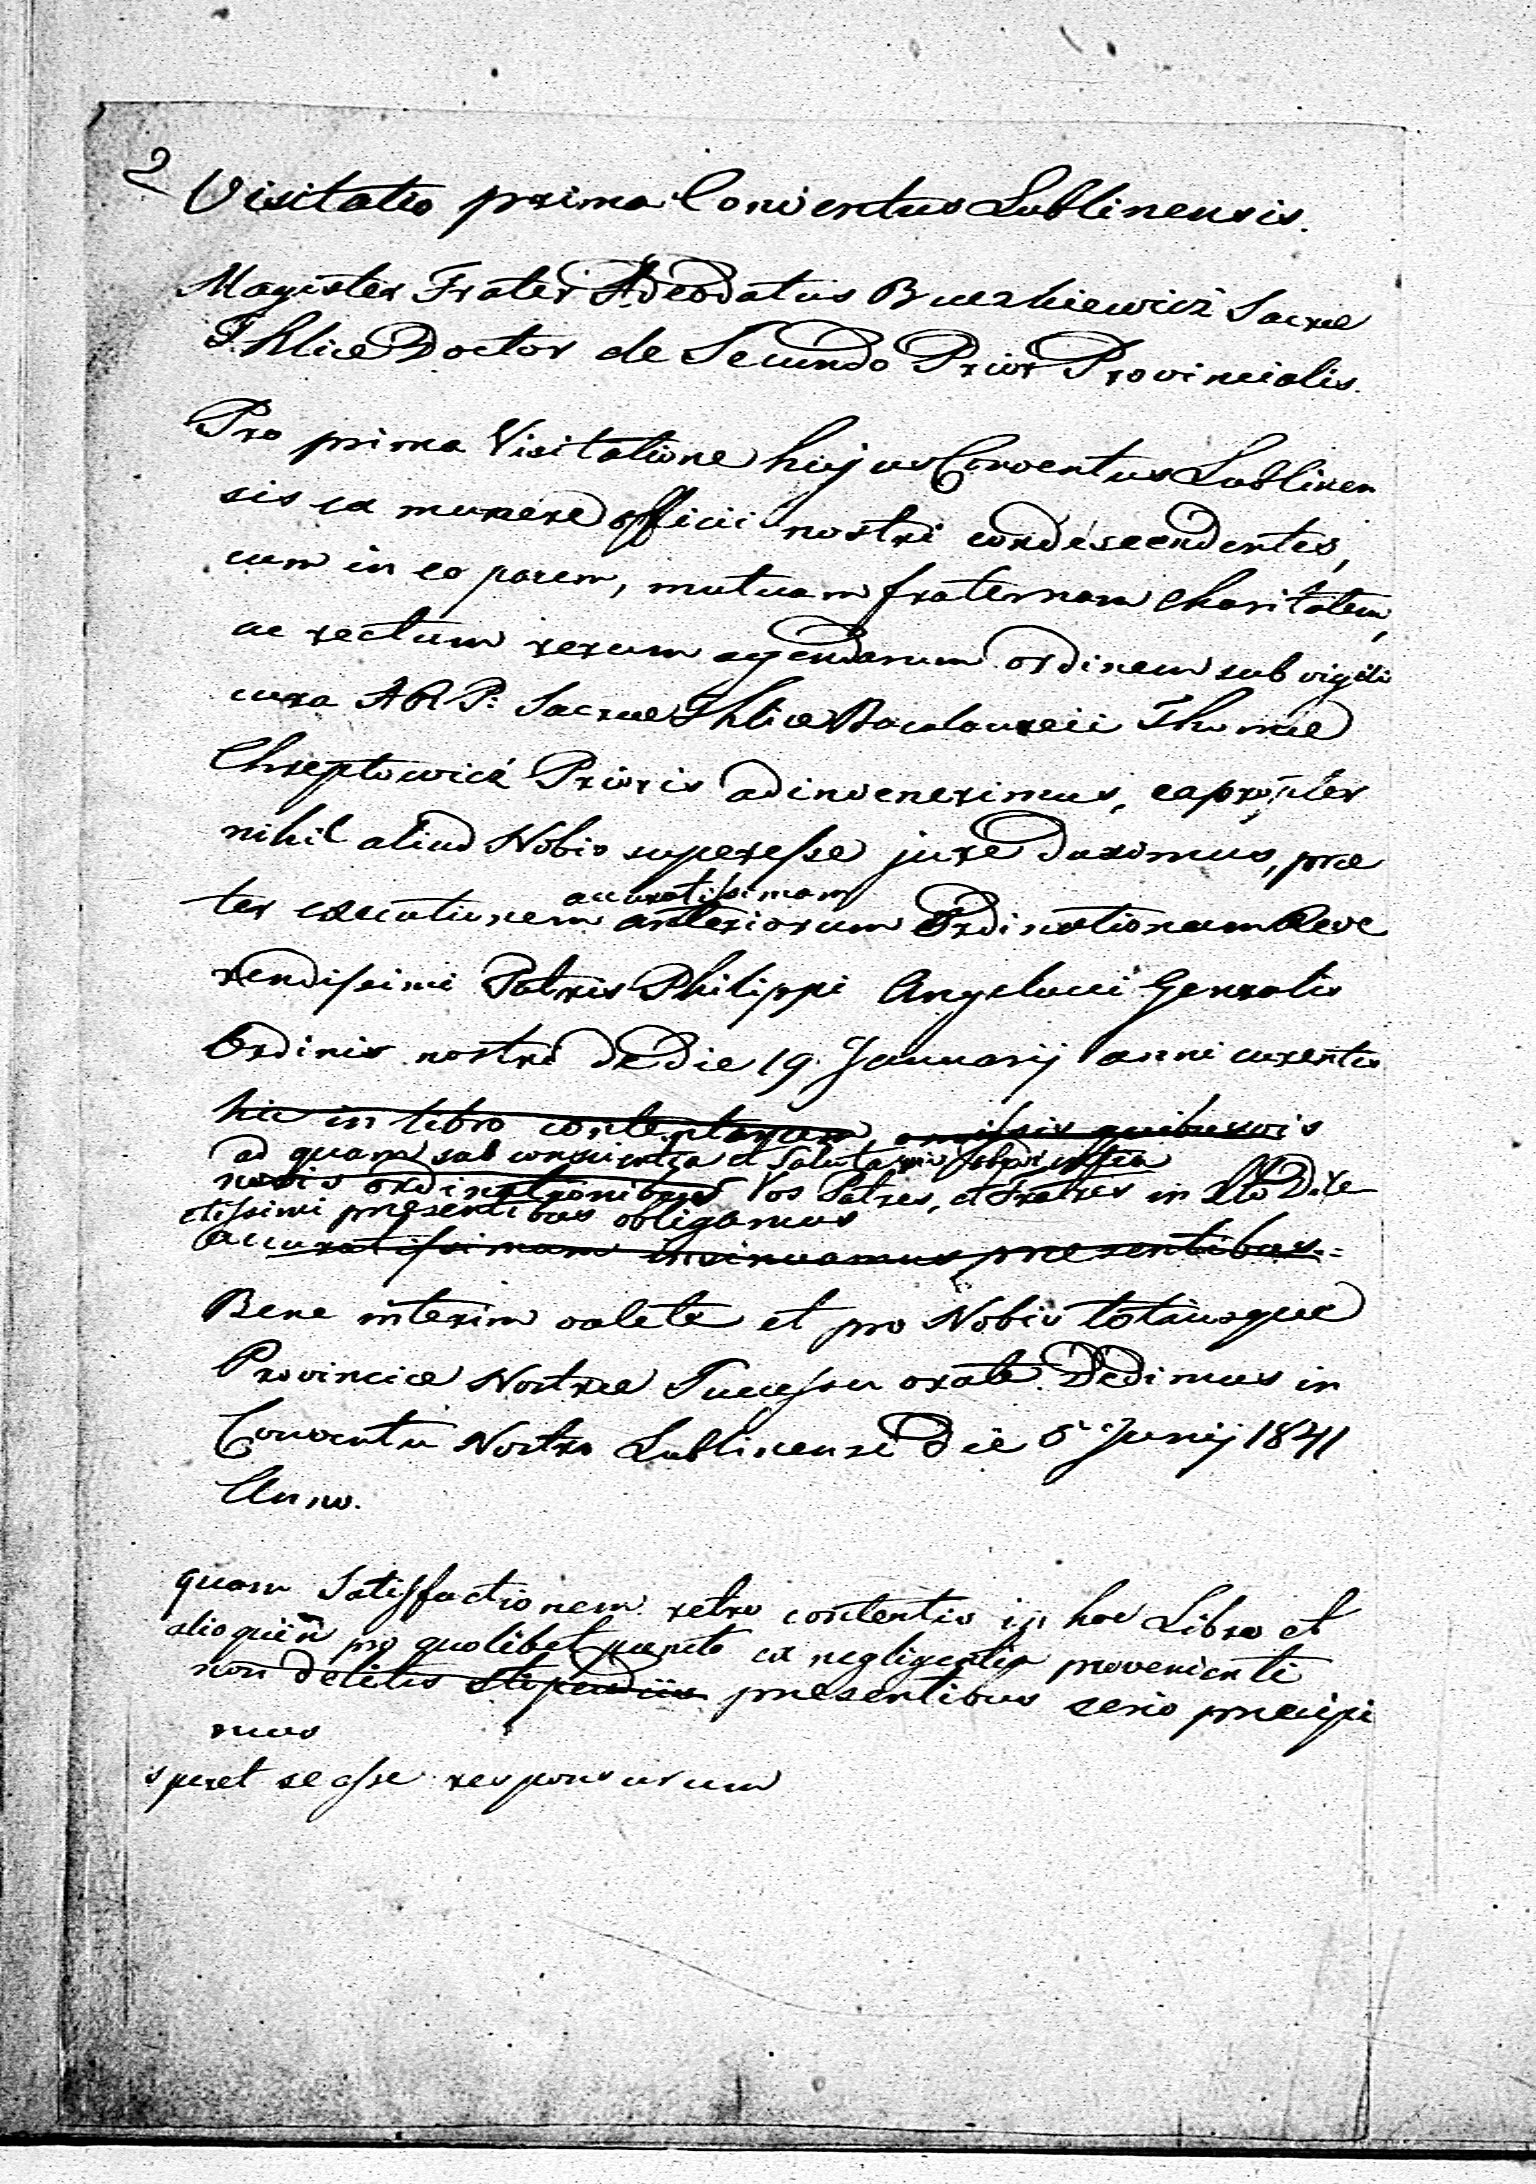 2
Visitatio prima Conventus Lublinensis.
Magister Frater Adeodatus Buczkiewicz Sacrae
Thliae Doctor de Secundo Prior Provincialis.
Pro prima Visitatione hujus Conventus Lublinen
sis ex munere officii nostri condescendentes,
cum in eo pacem, mutuam fraternam charitatem,
ac rectum rerum agendarum ordinem sub vigili
cura A R P: Sacrae Thliae Bacalaureii Thomae
Chreptowicz Prioris adinvenerimus, eapropter
nihil aliud Nobis superesse jure duximus, prae
accuratissimam
ter executionem anteriorum Ordinationum Reve
rendissimi Patris Philippi Angelucci Genralis
Ordinis nostri de die 19 Januarij anni curentis
hic in libro contentarum, omissis quibusvis
ad quam sub conscientia et Salutari
novis ordinationibus Vos Patres, et Fratres in Dile
ctissimi presentibus obligamus
accuratissimam insinuamus praesentibus.=
Bene interim valete et pro Nobis totiusque
Provinciae Nostrae Sucessu orate. Dedimus in
Conventu Nostro Lublinensi die 5 Junij 1841
Anno.
quam Satisfactionem retro contentis in hoc Libro et
alioquin pro quolibet puncto ex negligentia provenienti
non deletis stipendiis praesentibus serio praecipi
mus
speret se esse responsurum